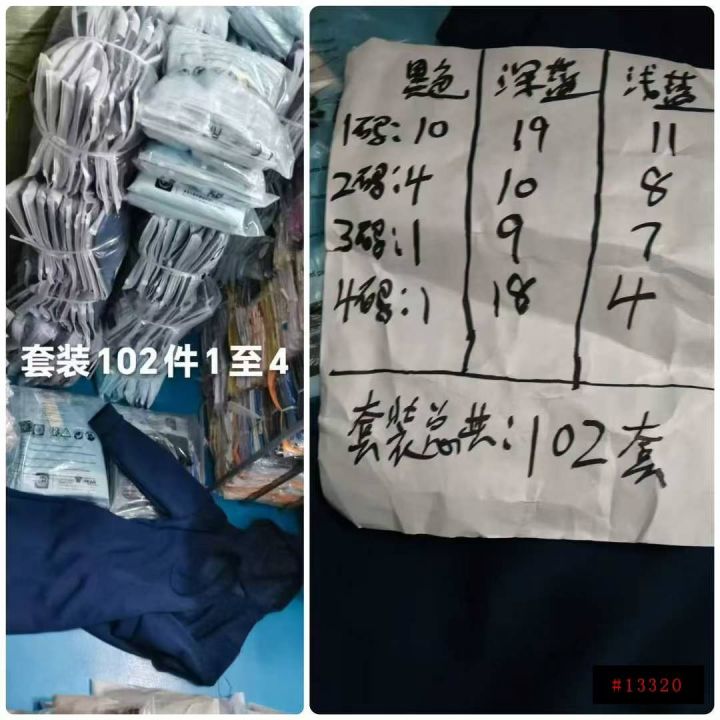 套装102件1至4
黑色 深蓝 浅蓝
1码:10 19 11
2码:4 10 8
3码:1 9 7
4码:1 18 4
套装总共:102套
#13320